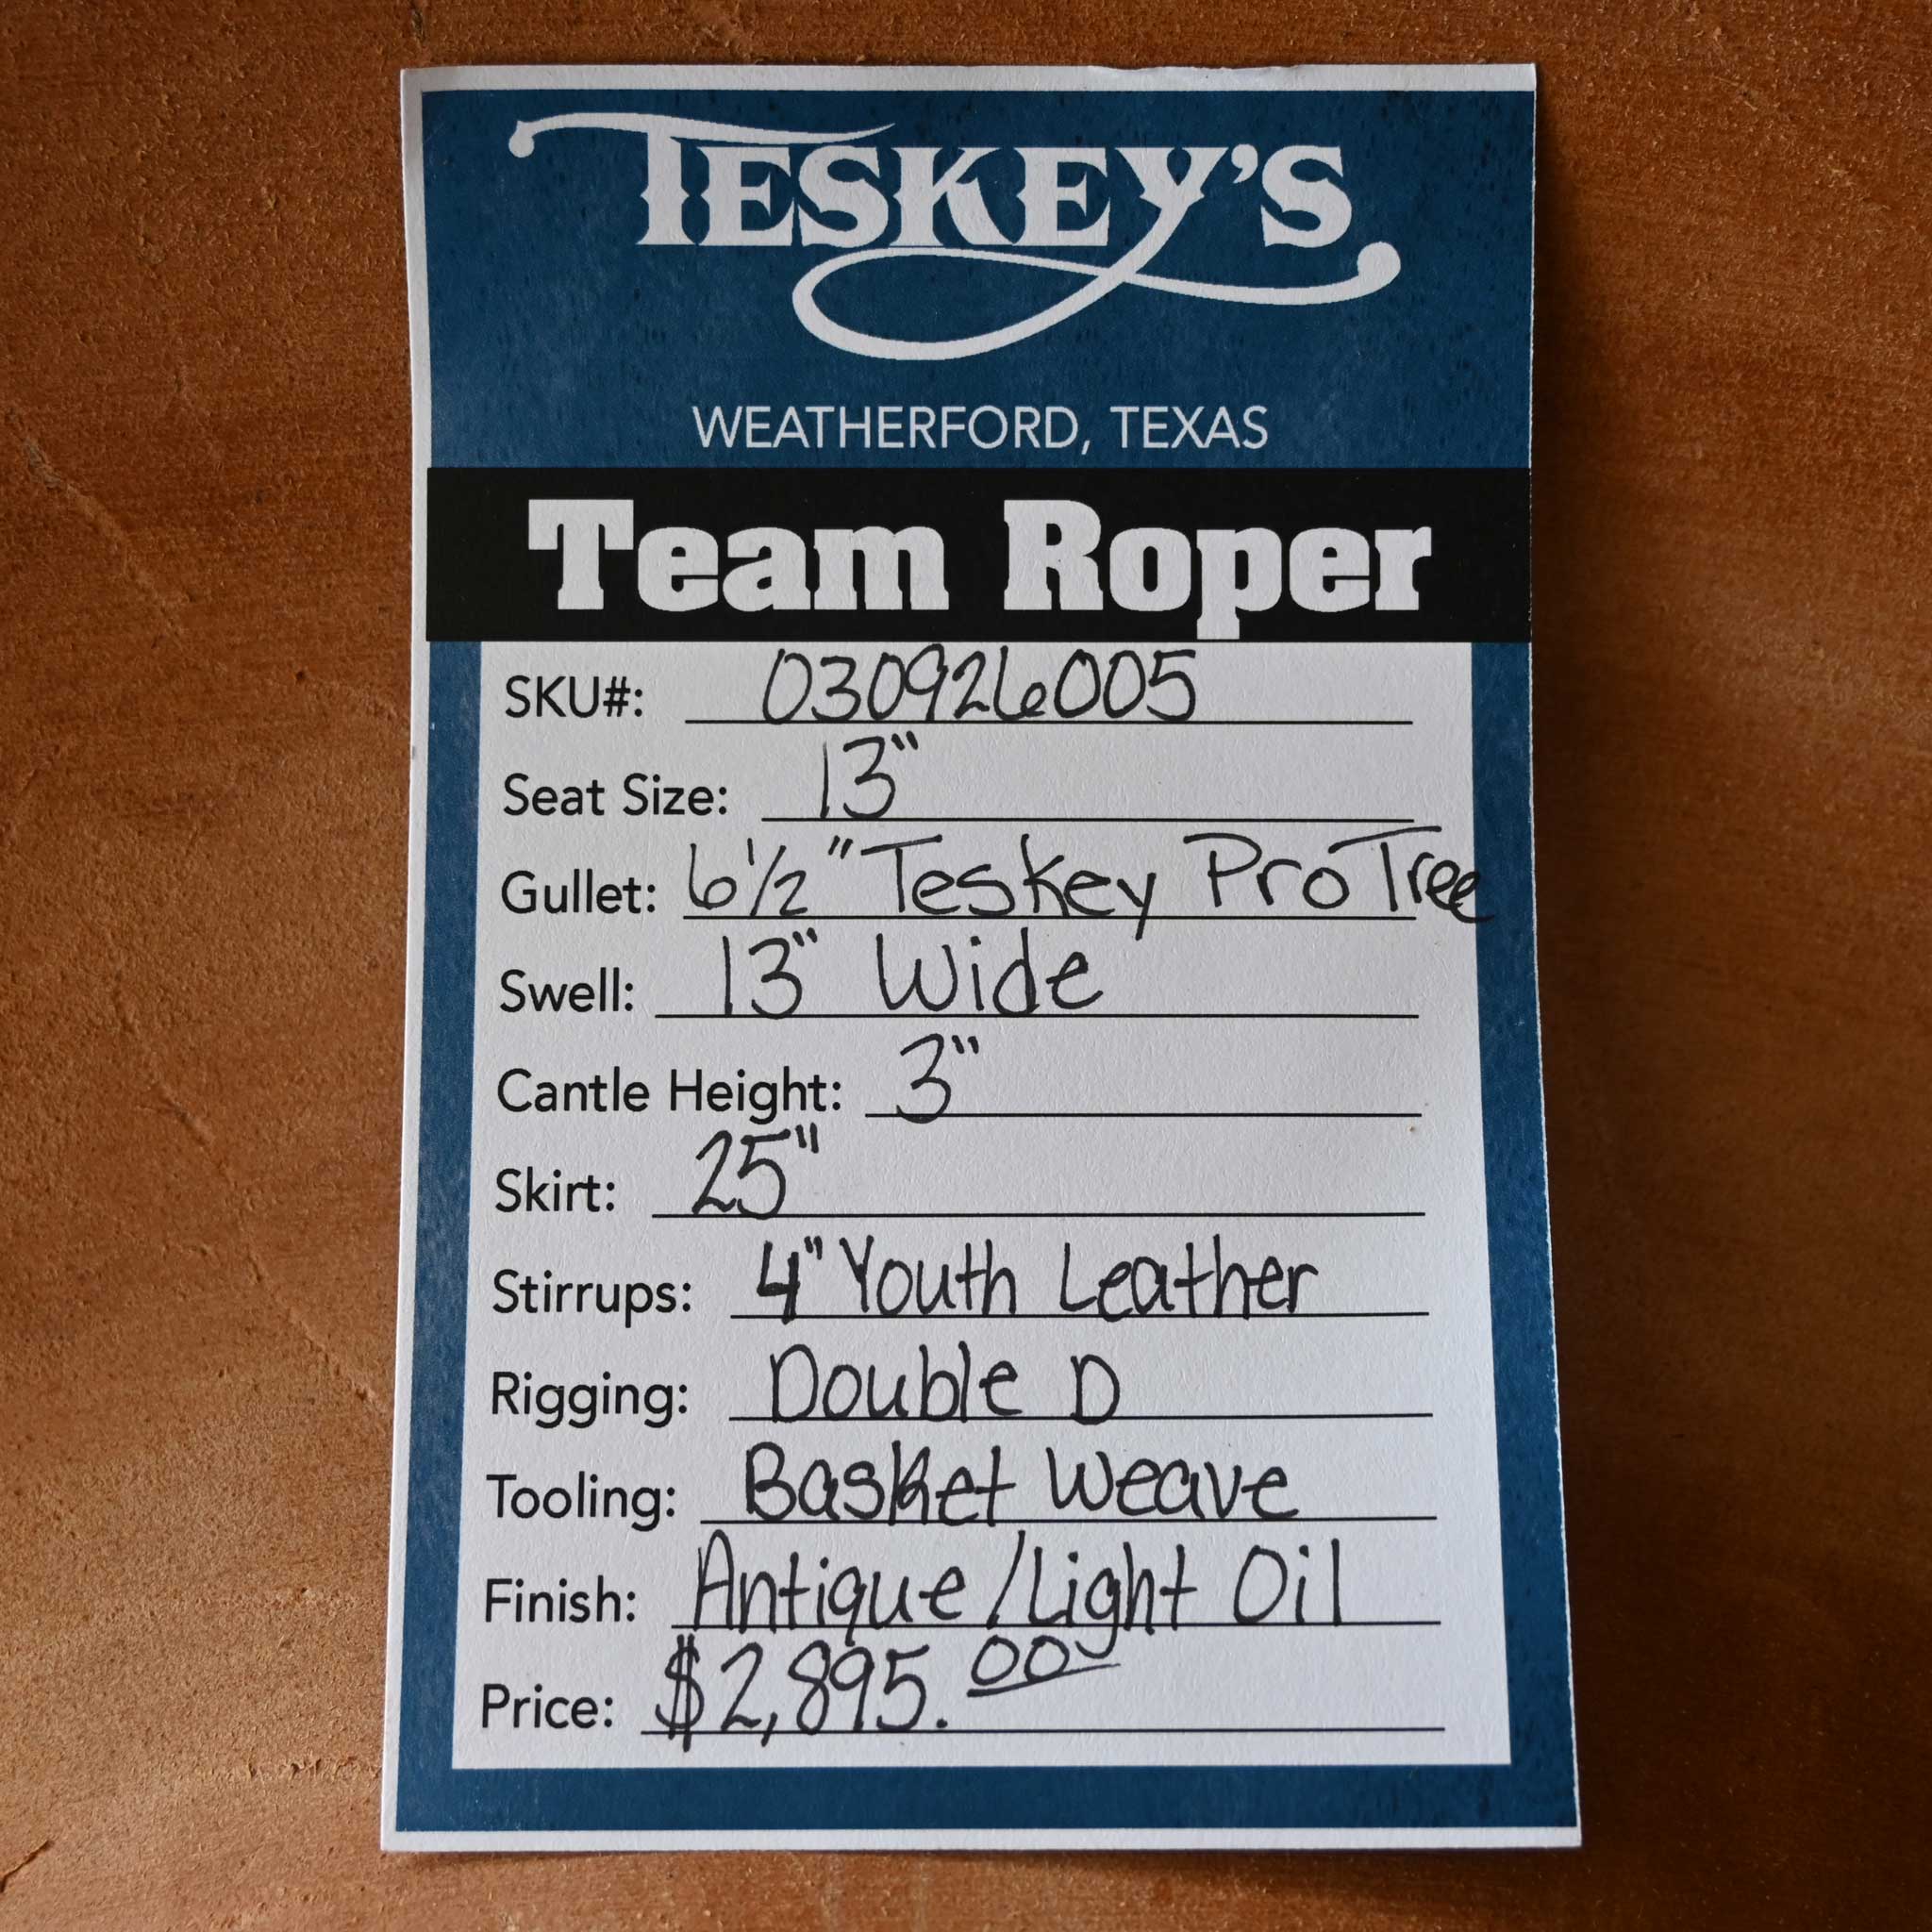 TESKEY'S
WEATHERFORD, TEXAS
Team Roper
SKU#: 030926005
Seat Size: 13"
Gullet: 6½" Teskey Pro Tree
Swell: 13" Wide
Cantle Height: 3"
Skirt: 25"
Stirrups: 4" Youth Leather
Rigging: Double D
Tooling: Basket Weave
Finish: Antique/Light Oil
Price: $2,895.00